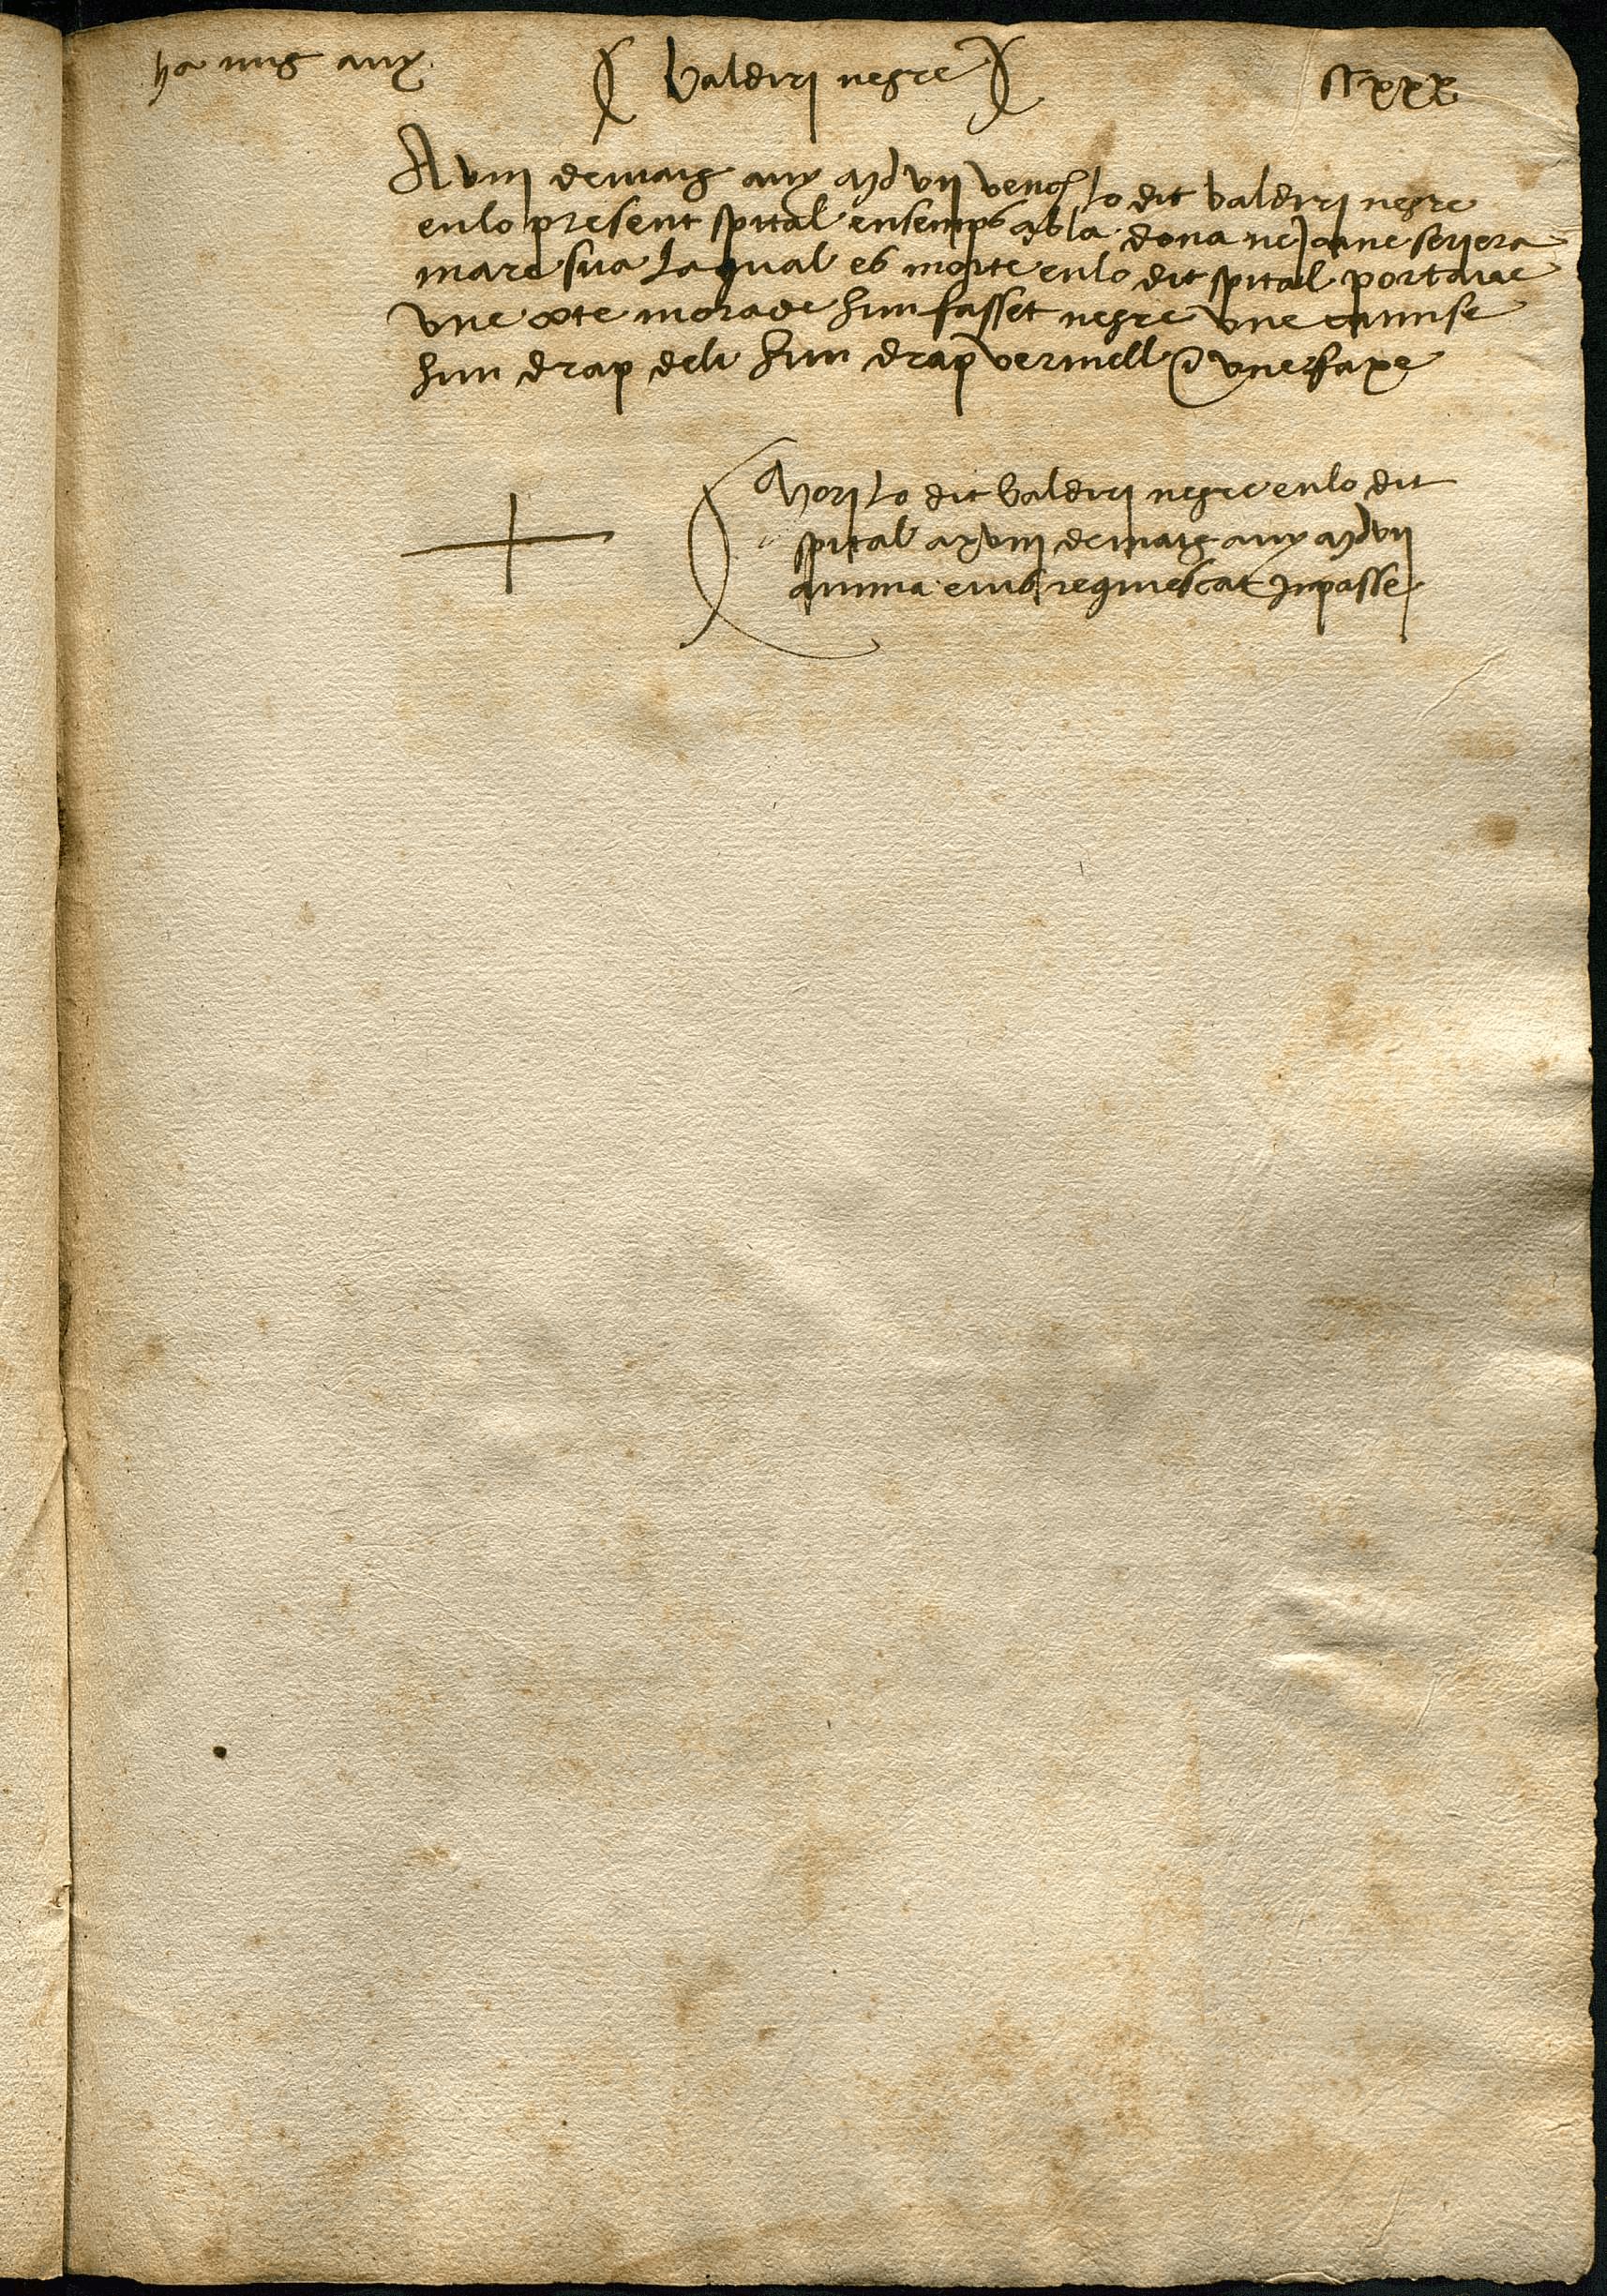 ha mig any
Baldiri negre
Clxxx
A viii de maig any mdvii vench lo dit baldiri negre
en lo present spital ensemps ab la dona ne joane seriera
mare sua la qual es morte en lo dit spital portave
vne cote morade hun fasset negre vne camise
hun drap de li hun drap vermell e vne faxe
Mori lo dit baldiri negre en lo dit
spital a xviii de maig any mdvii
anima eius requiescat in passe